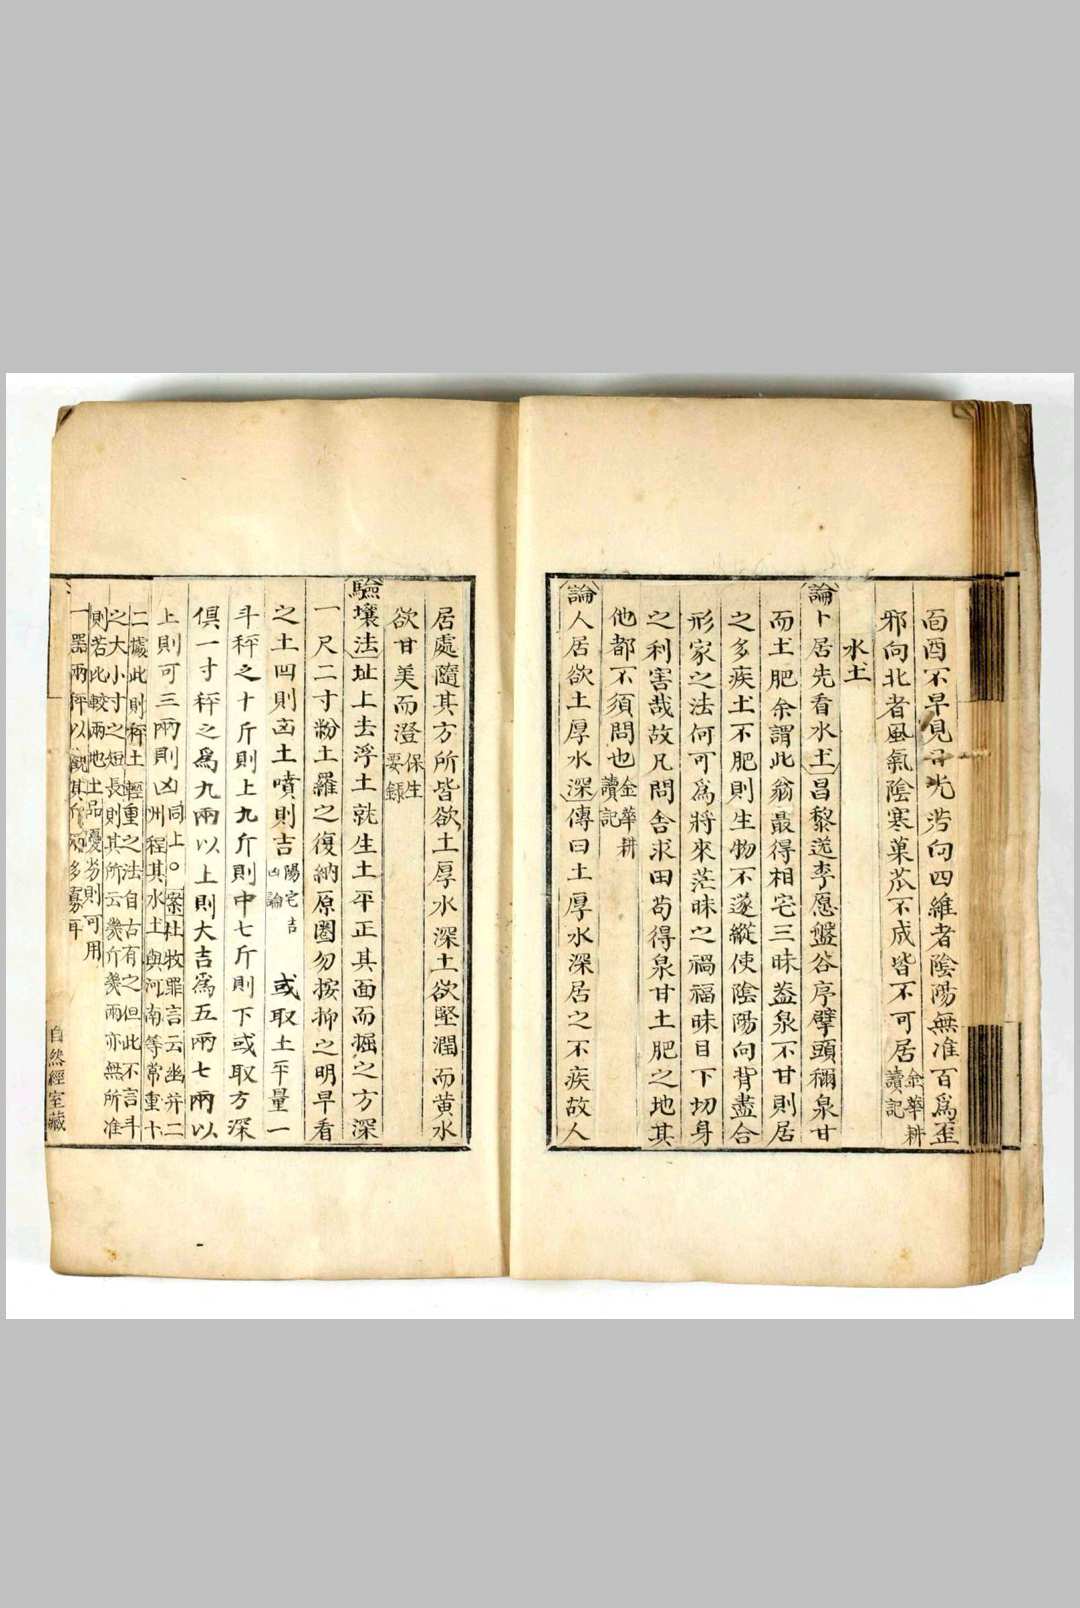 面酉不早見 光 向四維者陰陽無准百爲歪
邪向北者風氣陰寒菓苽不成皆不可居金華耕讀記
水土
論卜居先看水土昌黎送李愿盤谷序劈頭稱泉甘
而土肥余謂此翁最得相宅三昧葢泉不甘則居
之多疾土不肥則生物不遂縱使陰陽向背盡合
形家之法何可爲將來茫昧之禍福昧目下切身
之利害哉故凡問舍求田苟得泉甘土肥之地其
他都不須問也金華耕讀記
論人居欲土厚水深傳曰土厚水深居之不疾故人
居處隨其方所皆欲土厚水深土欲堅潤而黃水
欲甘美而澄保生要錄
驗壤法址上去浮土就生土平正其面而掘之方深
一尺二寸粉土羅之復納原圈勿按抑之明早看
之土凹則凶土噴則吉陽宅吉凶論 或取土平量一
斗秤之十斤則上九斤則中七斤則下或取方深
俱一寸秤之爲九兩以上則大吉爲五兩七兩以
上則可三兩則凶同上○案杜牧罪言云幽并二州程其水土與河南等常重十
二據此則秤土輕重之法自古有之但此不言斗之大小寸之短長則其所云幾斤幾兩亦無所准
則若比較兩地土品優劣則可用一器兩秤以觀其斤兩多寡耳
自然經室藏